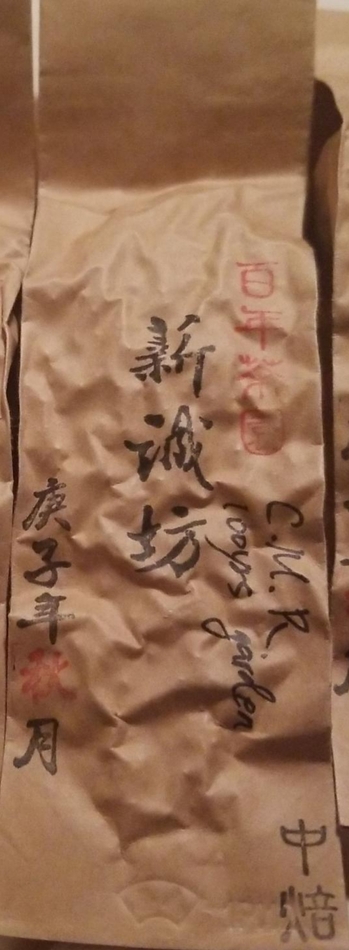 百年老園
C.M.R
100yrs garden
新誠坊
庚子年秋月
中焙